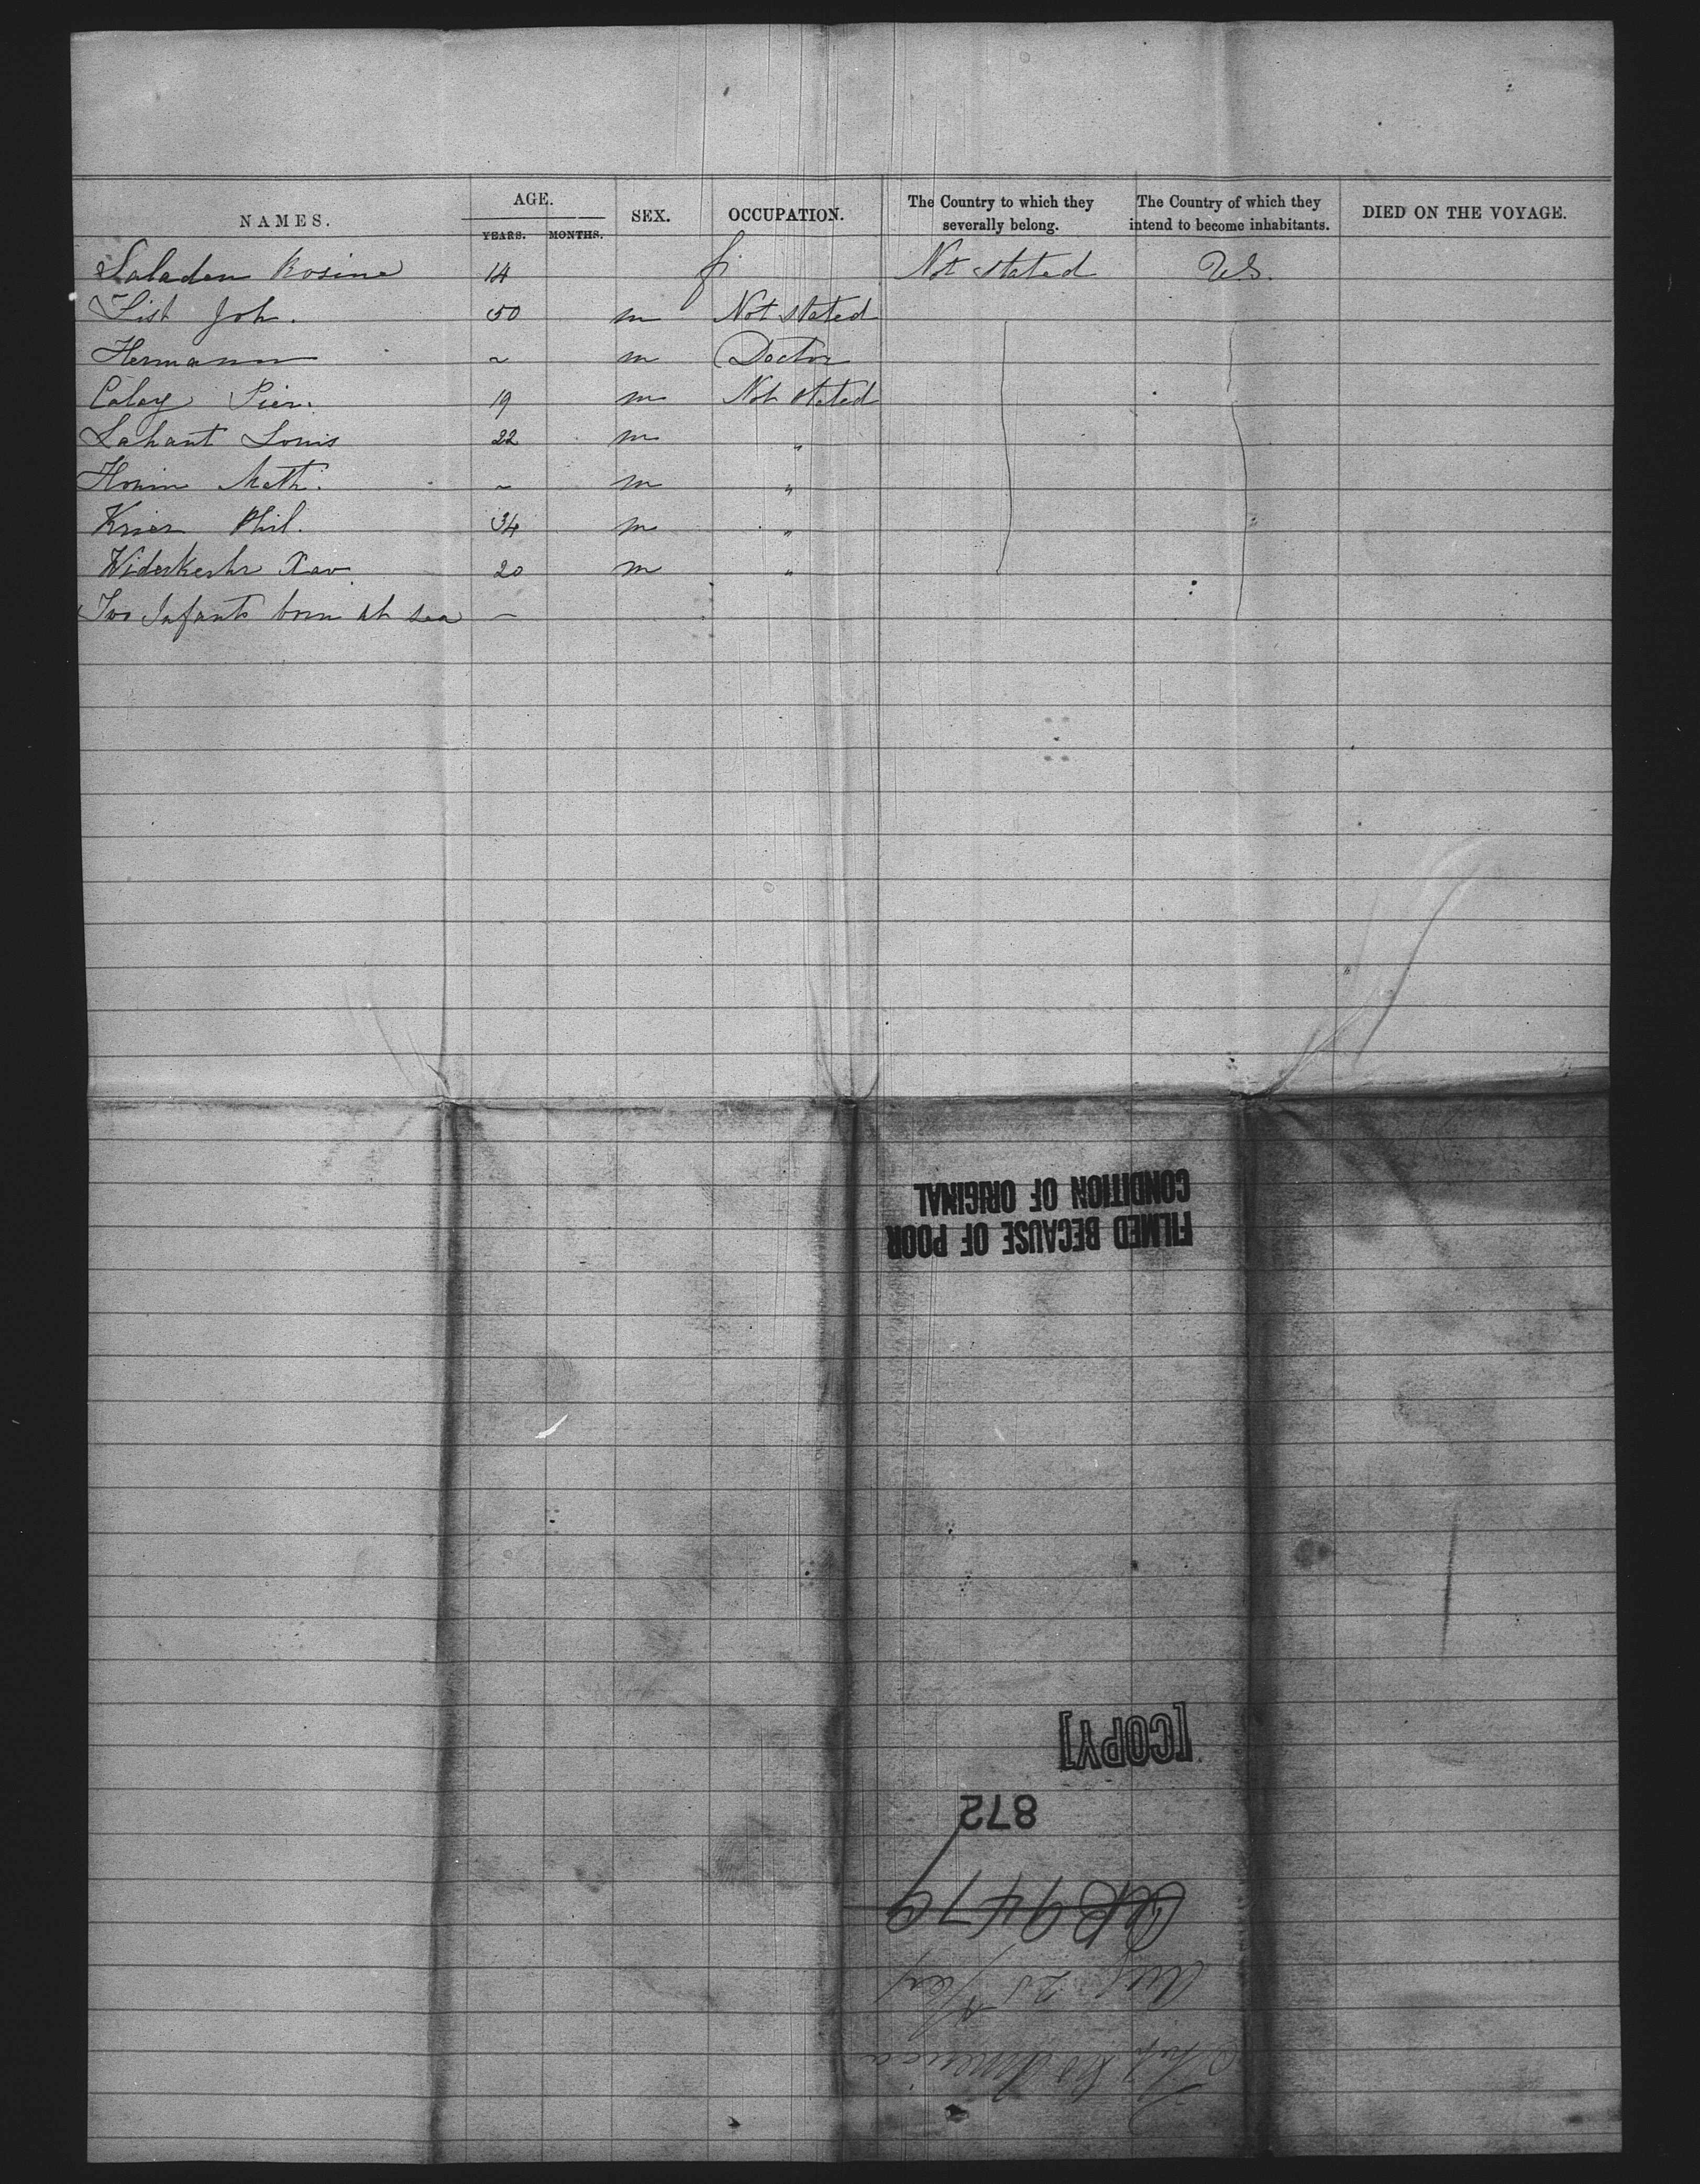 NAMES. AGE. YEARS. MONTHS. SEX. OCCUPATION. The Country to which they severally belong. The Country of which they intend to become inhabitants. DIED ON THE VOYAGE.
Saladen Rosine 14 f Not stated U.S.
List Joh. 50 m Not stated
Hermann ~ m Doctor
Calay Pier. 19 m Not stated
Lahant Louis 22 m "
Honin Math. ~ m "
Krier Phil. 34 m "
Widerkerhr Xav. 20 m "
Two Infants born at sea —
FILMED BECAUSE OF POOR
CONDITION OF ORIGINAL
[COPY]
872
9479
America